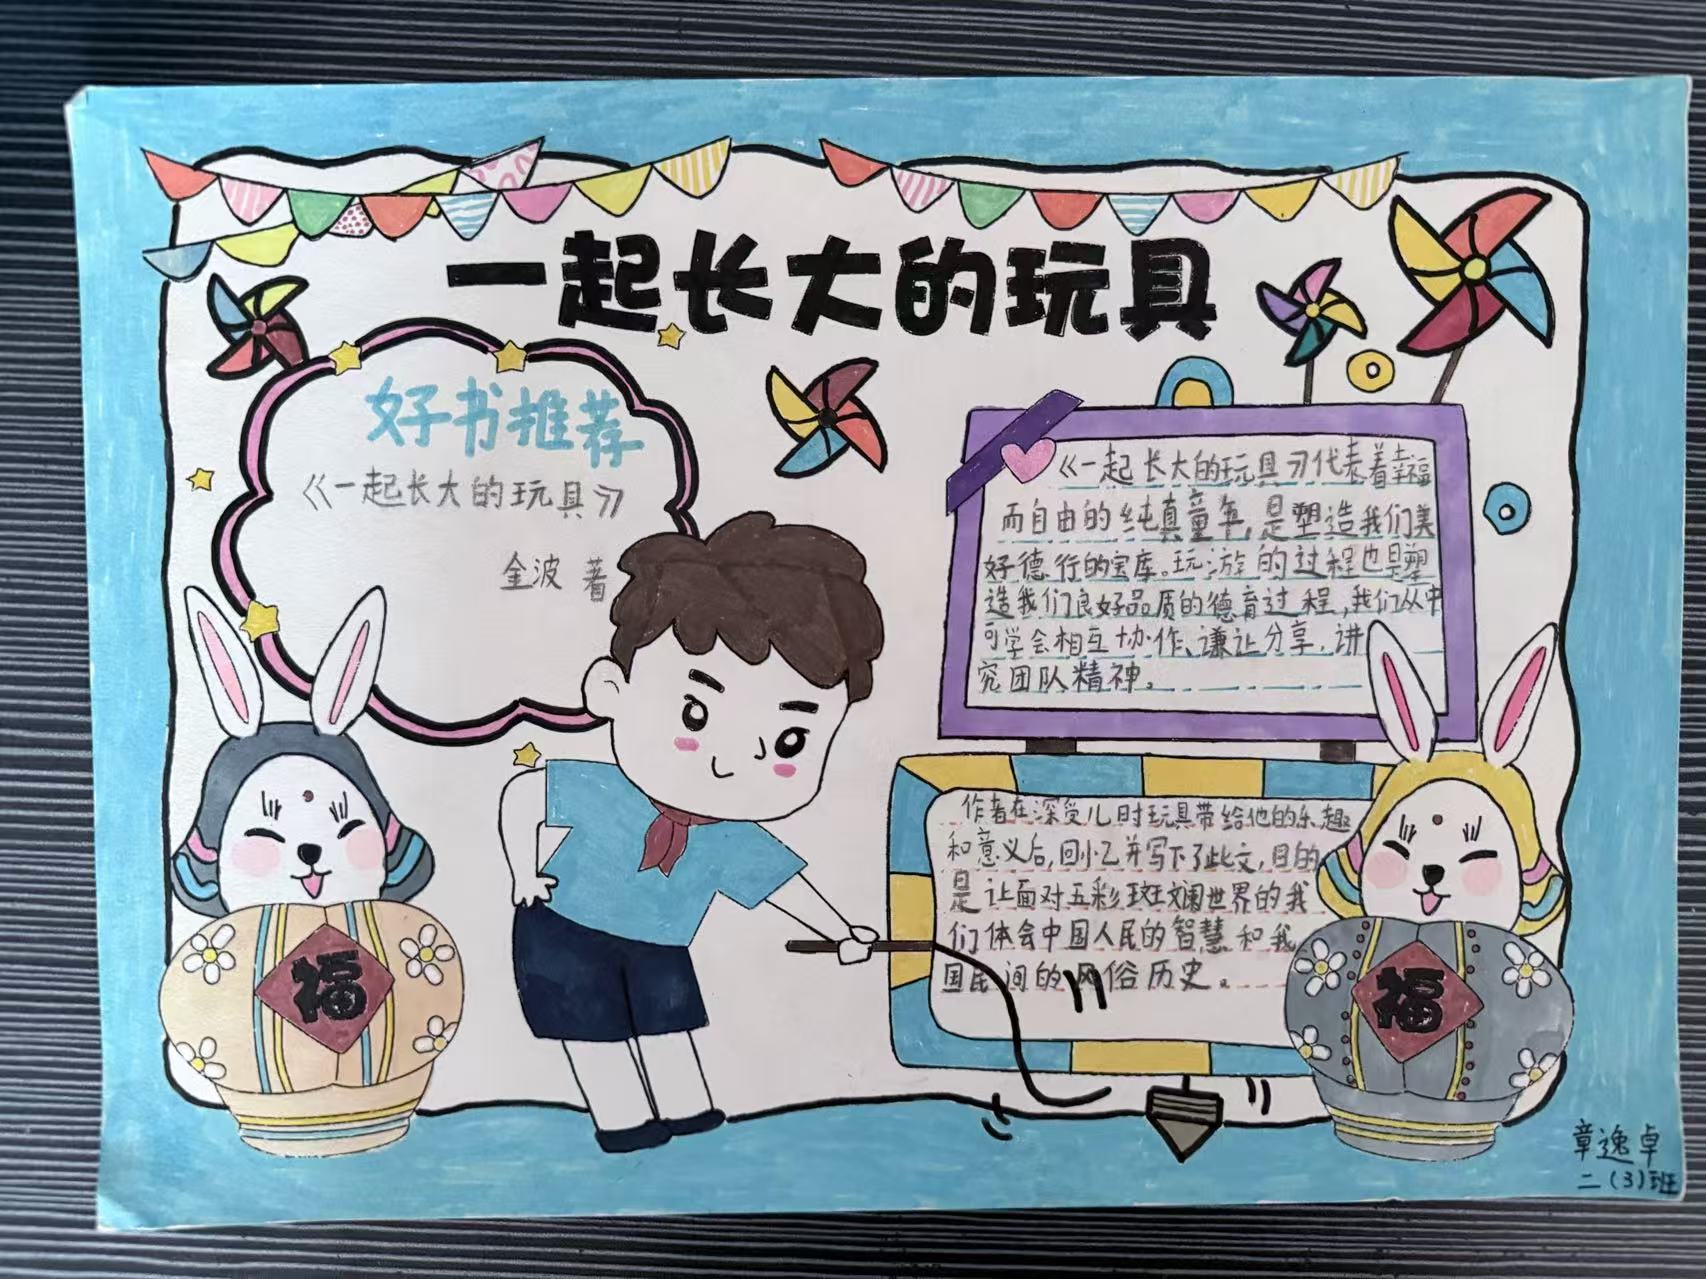 一起长大的玩具
好书推荐
《一起长大的玩具》
金波 著
《一起长大的玩具》代表着幸福
而自由的纯真童年，是塑造我们美
好德行的宝库。玩游的过程也是塑
造我们良好品质的德育过程，我们从中
可学会相互协作、谦让分享，讲
究团队精神。
作者在深受儿时玩具带给他的乐趣
和意义后，回忆并写下了此文，目的
是让面对五彩斑斓世界的我
们体会中国人民的智慧和我
国民间的风俗历史。
福
福
章逸卓
二（3）班